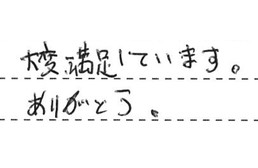 大変満足しています。
ありがとう。